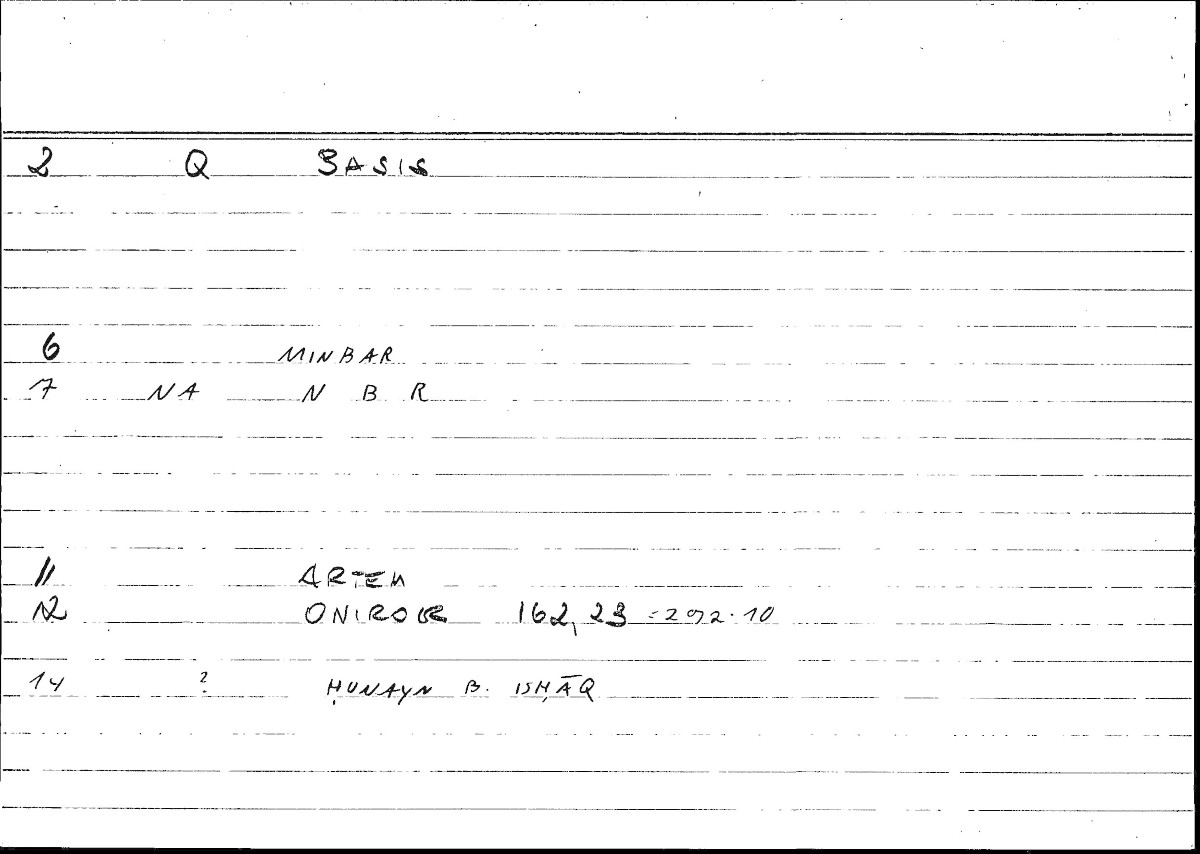 2 Q BASIS
6 MINBAR
7 NA N B R
11 ARTEM
12 ONIROCR 162,23 = 292.10
14 ? ḤUNAYN B. ISḤĀQ